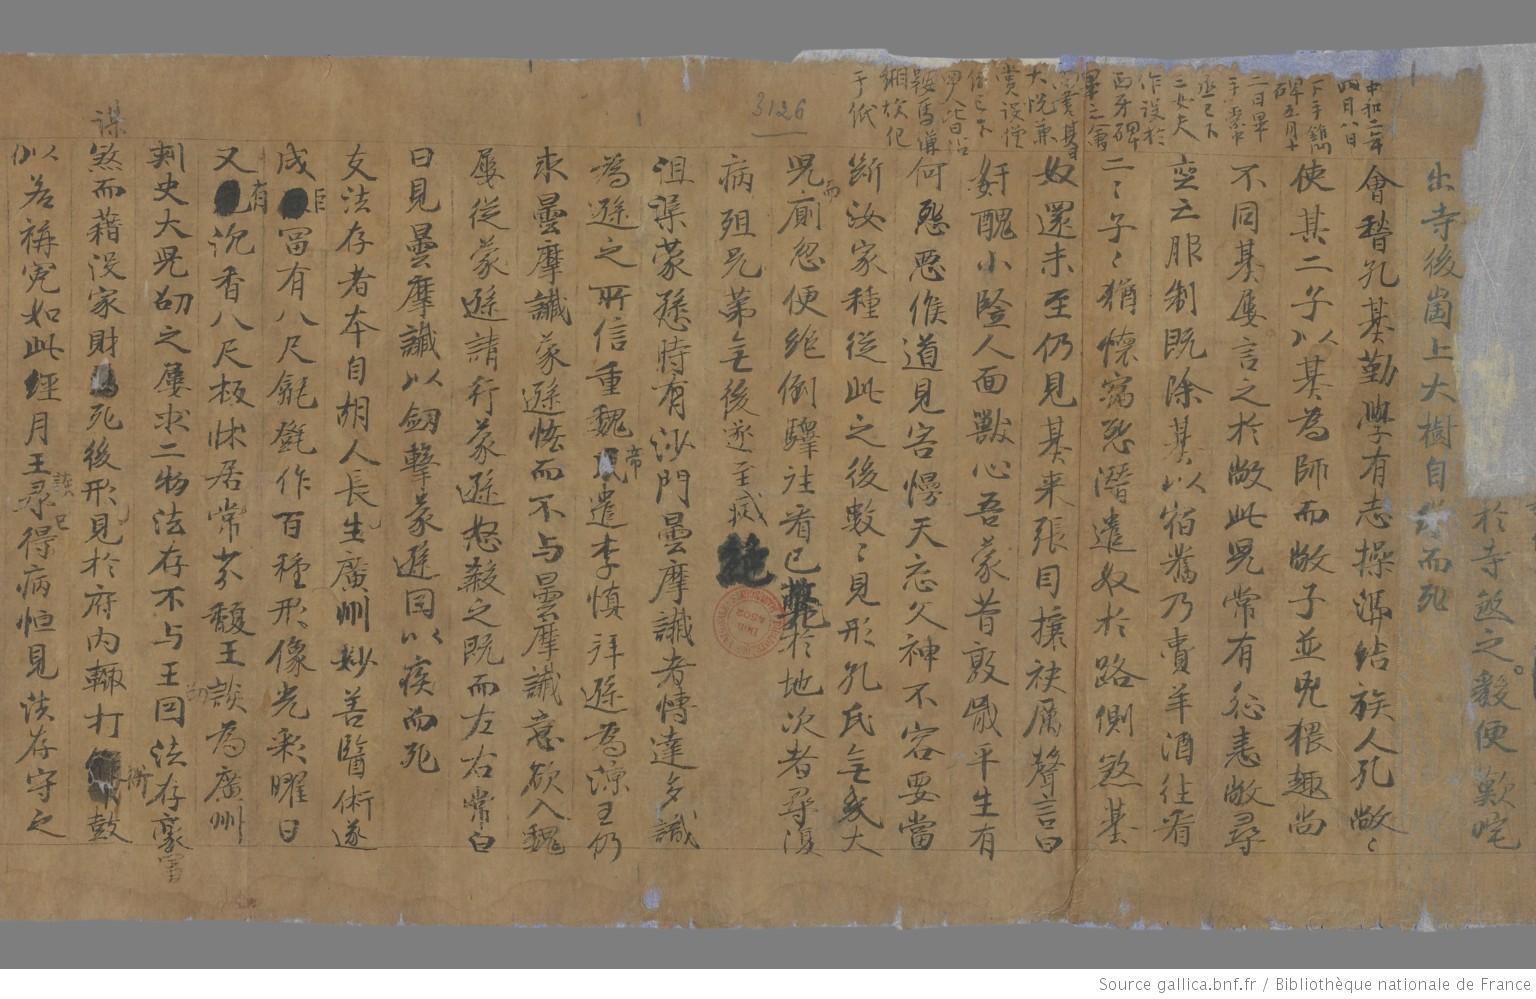 於寺煞之毅便歎咤
出寺後崗上大樹自而死
會稽孔基勤學有志操馮結族人孔敞〻
使其二子以基為師而敞子並兇猥趣尚
不同基屢言之於敞此兒常有忿恚敞尋
亡服制既除基以宿舊乃賷羊酒往看
二〻子〻猶懷宿怨潛遣奴於路側煞基
奴還未至仍見基来張目攘袂厲聲言曰
姧醜小竪人面獸心吾蒙昔敦戢平生有
何怨惡候道見害慢天忘父神不容要當
斷汝家種從此之後數〻見形孔氏无幾大
兒而廁忽便絶倒驛往看已斃於地次者尋復
病殂兄弟无後遂至滅
沮渠蒙遜時有沙門曇摩讖者博達多識
為遜之所信重魏帝遣李慎拜遜為涼王仍
求曇摩讖蒙遜恡而不与曇摩讖意欲入魏
屢從蒙遜請行蒙遜怒煞之既而左右常白
日見曇摩讖以劒擊蒙遜因以疾而死
支法存者本自胡人長生廣州妙善醫術遂
成巨富有八尺㲪㲪作百種形像光彩曜日
又有沉香八尺板牀居常芬馥王談為廣州
刺史大兒劭之屢求二物法存不与王因法存豪
謀煞而藉没家財死後形見於府内輙打衙鼓
似若稱寃如此經月王尋得病恒見法存守之
中和二年
四月八日
下手鐫
碑五月十
二日畢
手索中
丞已下
三女夫
作設於
西牙碑
畢之會
尚書其日
大悦兼
賞設僧
統已下
甲人此日沿
鞍馬縑
緗故記
于紙
3126